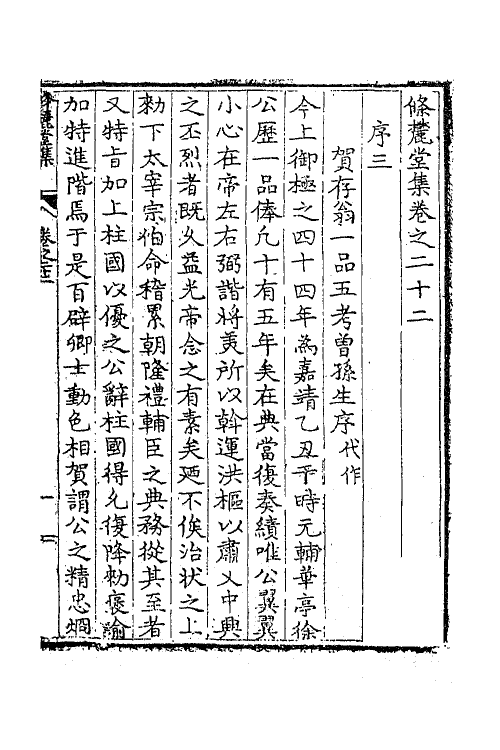 條麓堂集卷之二十二
序三
賀存翁一品五考曾孫生序代作
今上御極之四十四年為嘉靖乙丑乎時元輔華亭徐
公歷一品俸凢十有五年矣在典當復奏績唯公翼翼
小心在帝左右弼諧將羙所以斡運洪樞以肅乂中興
之丕烈者既乆益光帝念之有素矣廼不俟治状之上
勑下太宰宗伯命稽累朝隆禮輔臣之典務從其至者
又特㫖加上柱國以優之公辭柱國得允復降勑褒諭
加特進階焉于是百辟卿士動色相賀謂公之精忠炯
條麓堂集
卷之二十二
一